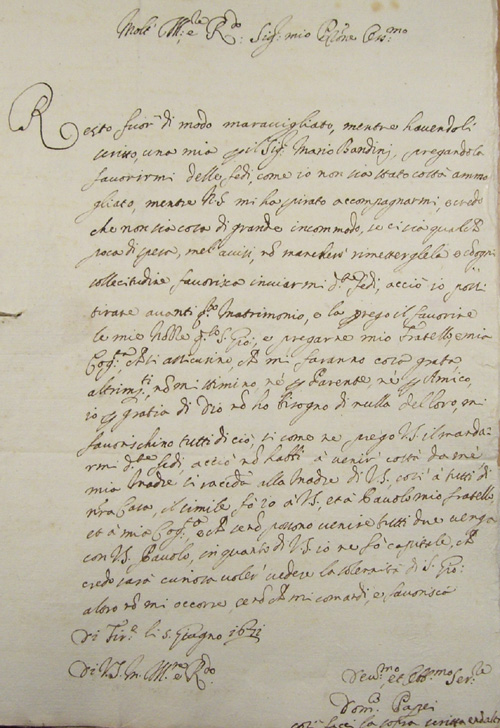 Molt' Ill.re e R.do Sig.r mio P.rone Oss.mo
Resto fuor' di modo maravigliato, mentre havendoli
scritto, una mia p il Sig. Mario Bandini, pregandola
favorirmi delle fedi, come io non sia stato costà ammo
gliato, mentre N.S. mi ha spirato accompagnarmi, e credo
che non sia cosa di grande incommodo, se ci sia qualch
poca di spesa, me l'avvisi, nō mancherò rimettergliela e cō ogni
sollecitudine favorisca inviarmi d.te fedi, acciò io possi
tirare avanti q.to Matrimonio, e la prego il favorire
le mie Nozze p S. Gio: e pregarne mio Fratello e mia
Cog.ta, ch li assicurino, ch mi faranno cosa grata
altrim.ti, nō mi stimino né p Parente, né p Amico,
io p gratia di Dio nō ho bisogno di nulla del loro, mi
favorischino tutti di ciò, si come ne prego V.S. il manda-
rmi d.te fedi, acciò nō habbi à venir' costà da me
mia Madre si racc.da alla Madre di V.S. così à tutti di
n'ra Casa, il simile fo io à V.S. et à Pavolo mio fratello,
et à mia Cog.ta, e ch se nō possono venire tutti due venga
con V.S. Pavolo, in quanto di V.S. io ne fò capitale, ch
credo sarà curiosa voler' vedere la solennità di S. Gio:
a loro nō mi occorre se nō ch mi comandi, e favorisca
Di Fir.e li 5. Giugno
Di V.S. m. Ill.re e R.do
Dev.mo et Obb.mo Ser.re
Dom.co Pazzi